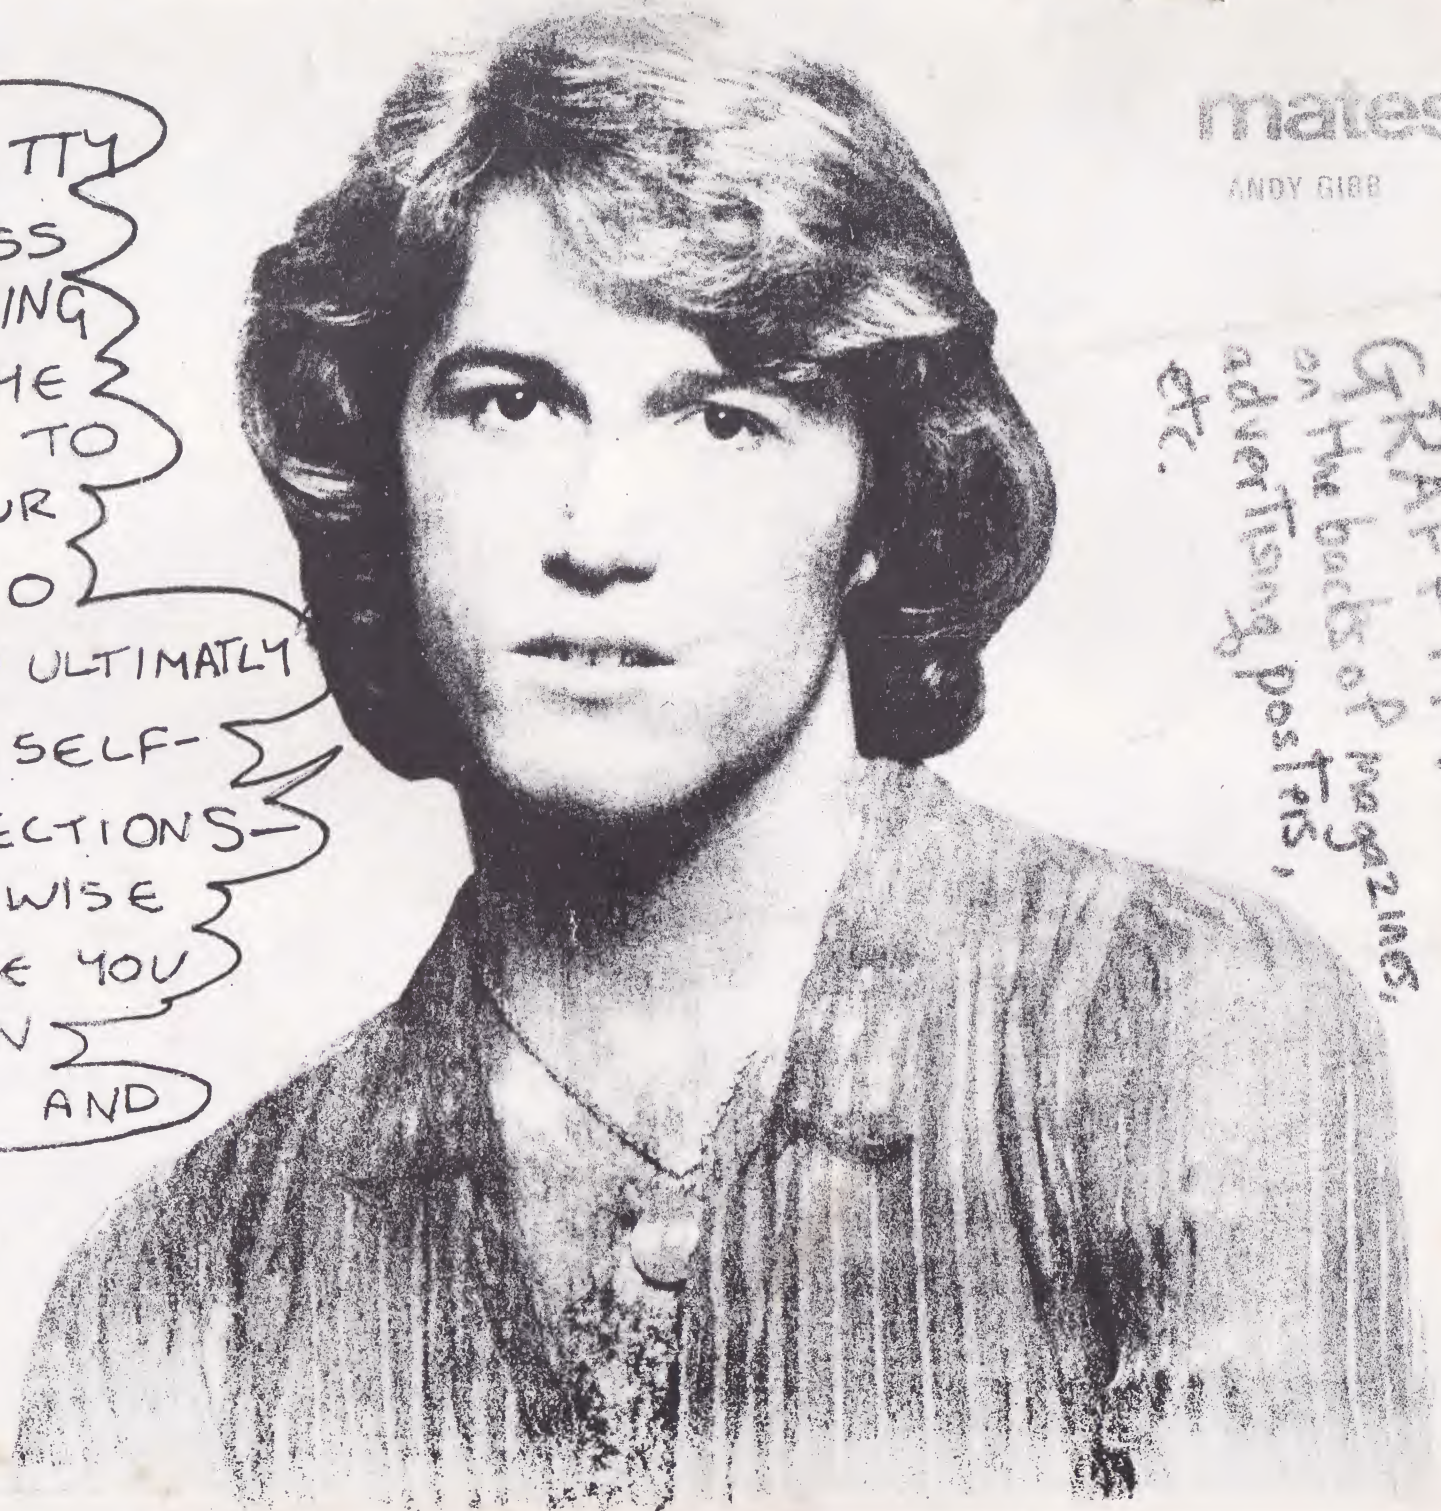 TTY
SS
ING
HE
TO
UR
O
ULTIMATLY
SELF-
ECTIONS-
WISE
E YOU
N
AND
mates
ANDY GIBB
GRAFFITI
on the backs of magazines,
adverTising posTers,
etc.